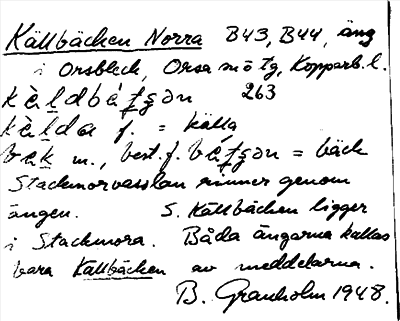 Källbäcken Norra B43, B44, äng
i Orsbleck, Orsa sn o tg, Kopparb. l.
263
f. = källa
m., best. f. = bäck
Stackmorvasslan rinner genom
ängen. S. Källbäcken ligger
i Stackmora. Båda ängarna kallas
bara Källbäcken av meddelarna.
B. Granholm 1948.